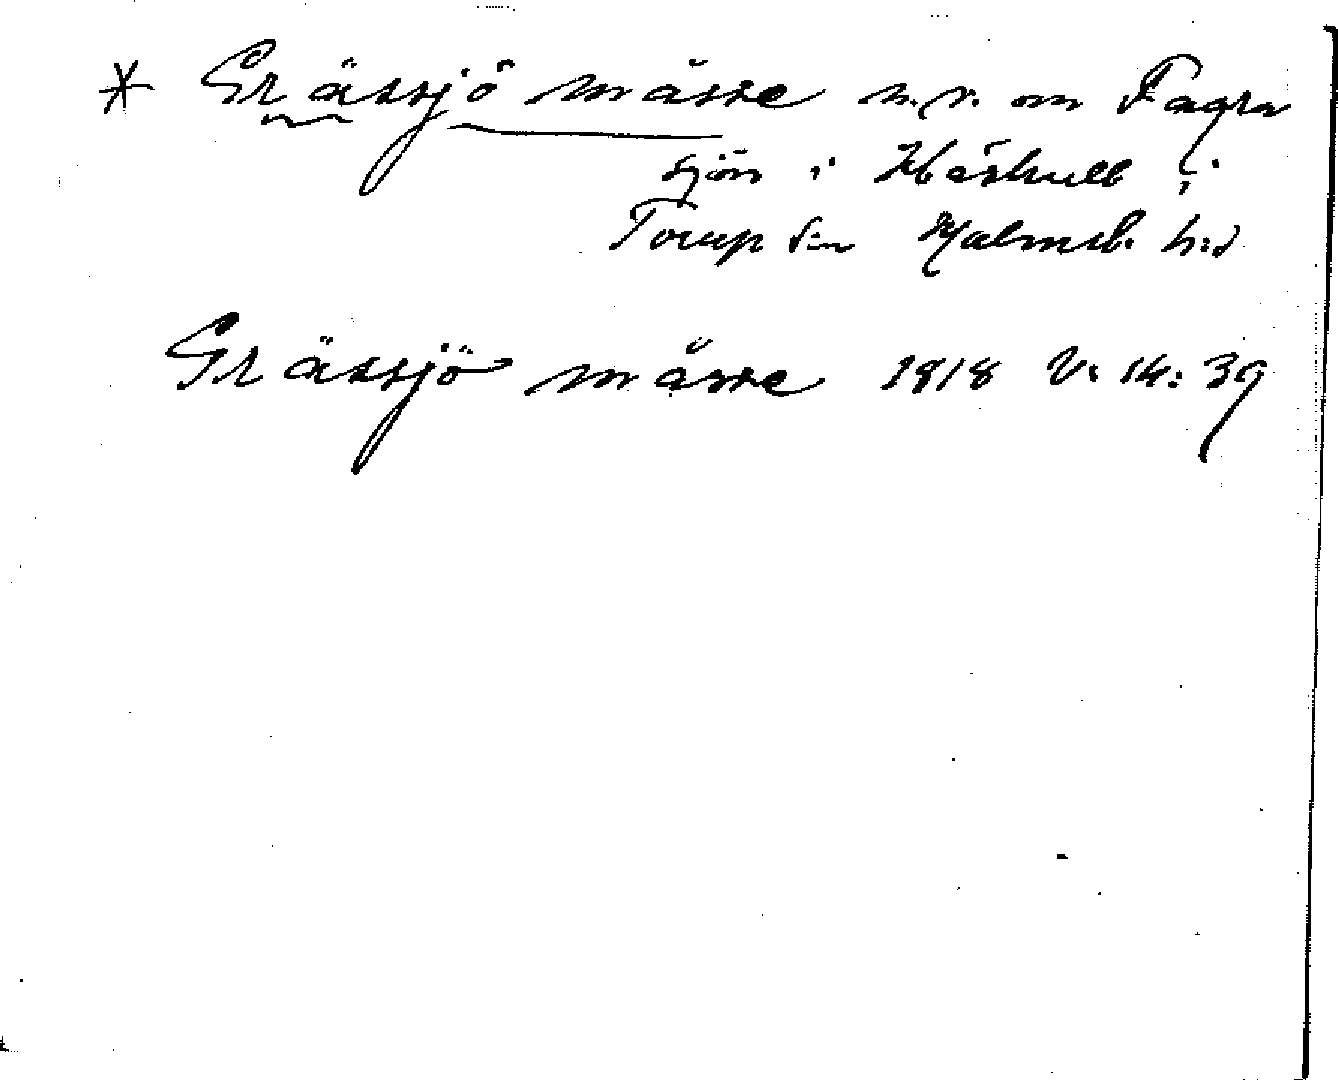 * Grässjö måsse n.v. om Fagra
sjön i Kåskull i
Torup s:n Halmst. h:d
Grässjö måsse 1818 V: 14: 39